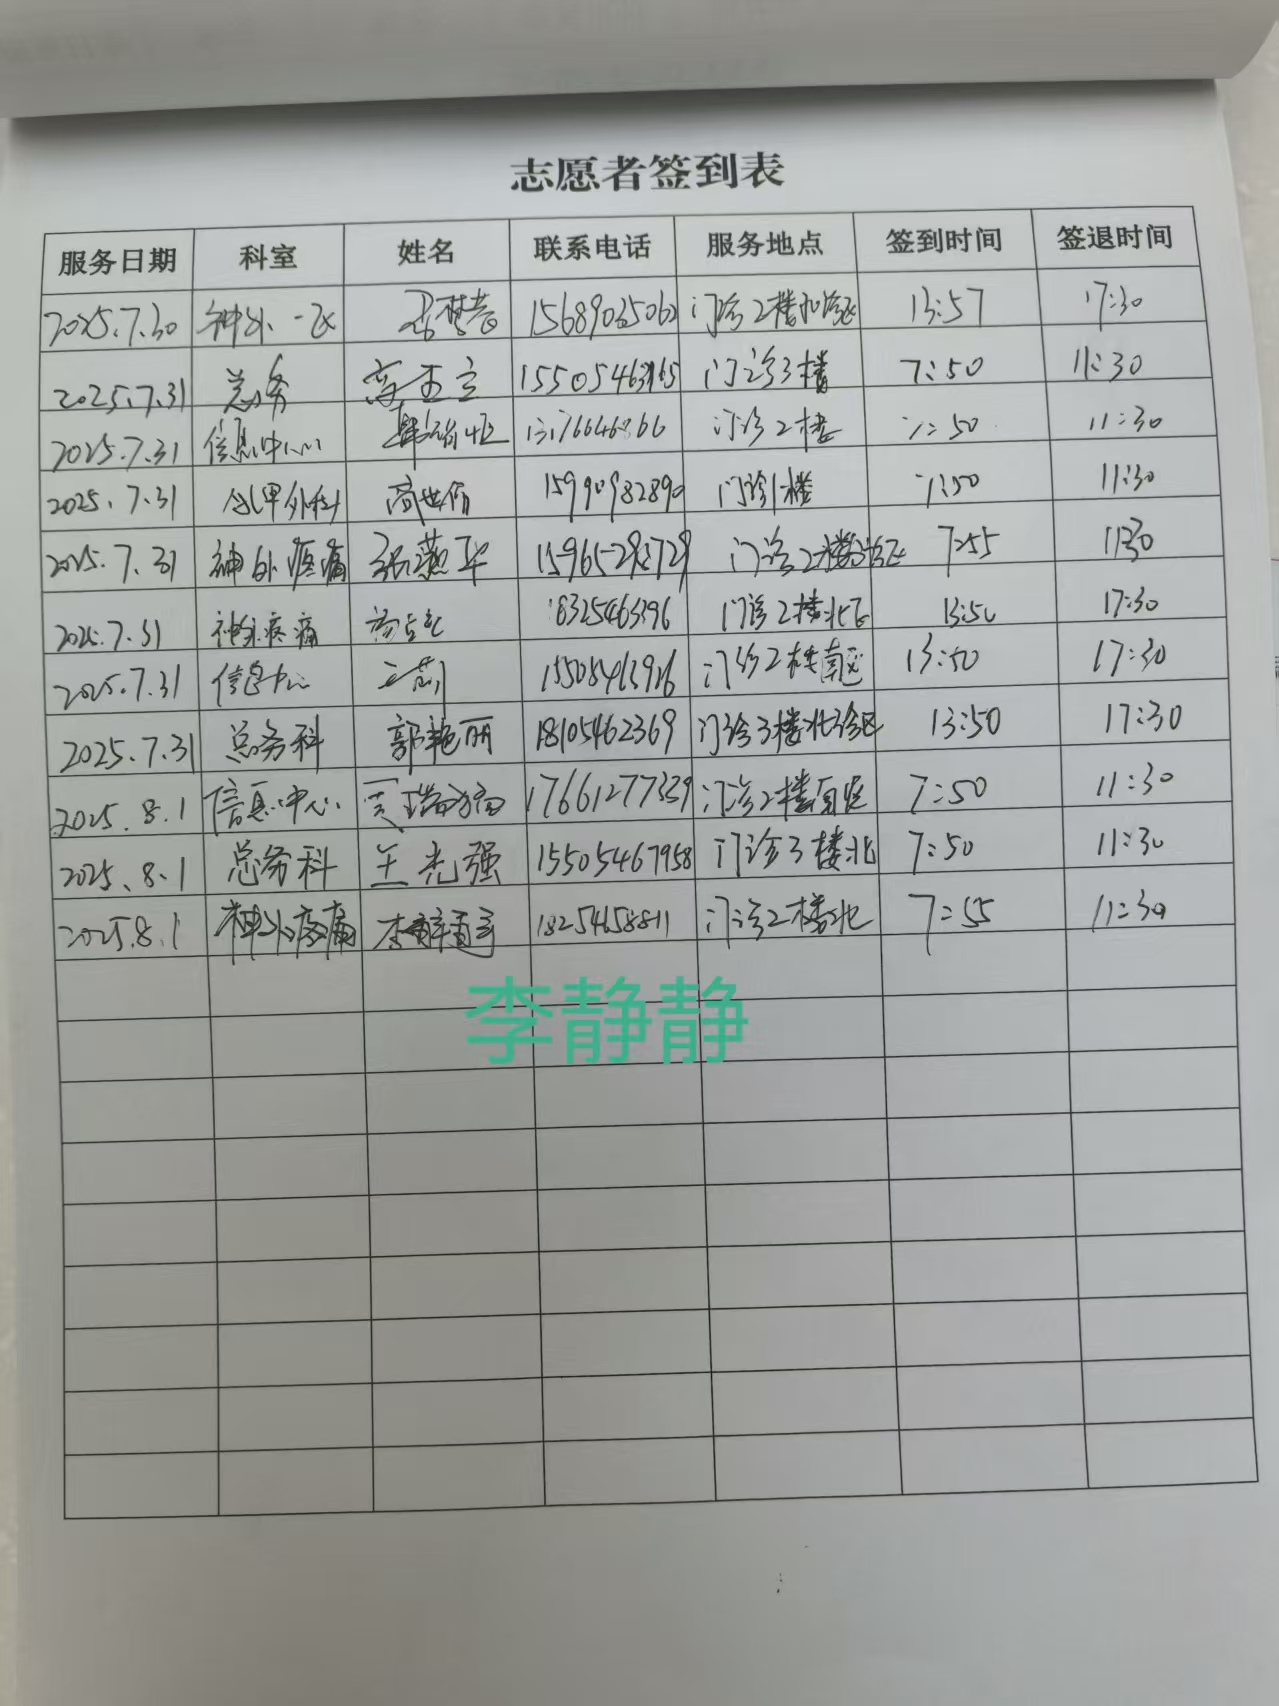 志愿者签到表
服务日期 科室 姓名 联系电话 服务地点 签到时间 签退时间
2025.7.30 神外一区 15689035062 门诊2楼北诊区 13:57 17:30
2025.7.31 总务 门诊3楼 7:50 11:30
2025.7.31 信息中心 门诊2楼 7:50 11:30
2025.7.31 乳甲外科 高世伯 15990982890 门诊1楼 7:50 11:30
2025.7.31 神外疼痛 门诊2楼北诊区 7:55 11:30
2025.7.31 神外疼痛 18325463396 门诊2楼北区 13:50 17:30
2025.7.31 信息中心 门诊2楼南区 13:50 17:30
2025.7.31 总务科 郭艳丽 18105462369 门诊3楼北诊区 13:50 17:30
2025.8.1 信息中心 17661277339 门诊2楼南区 7:50 11:30
2025.8.1 总务科 王光强 15505467958 门诊3楼北 7:50 11:30
2025.8.1 神外疼痛 18254658811 门诊2楼北 7:55 11:30
李静静